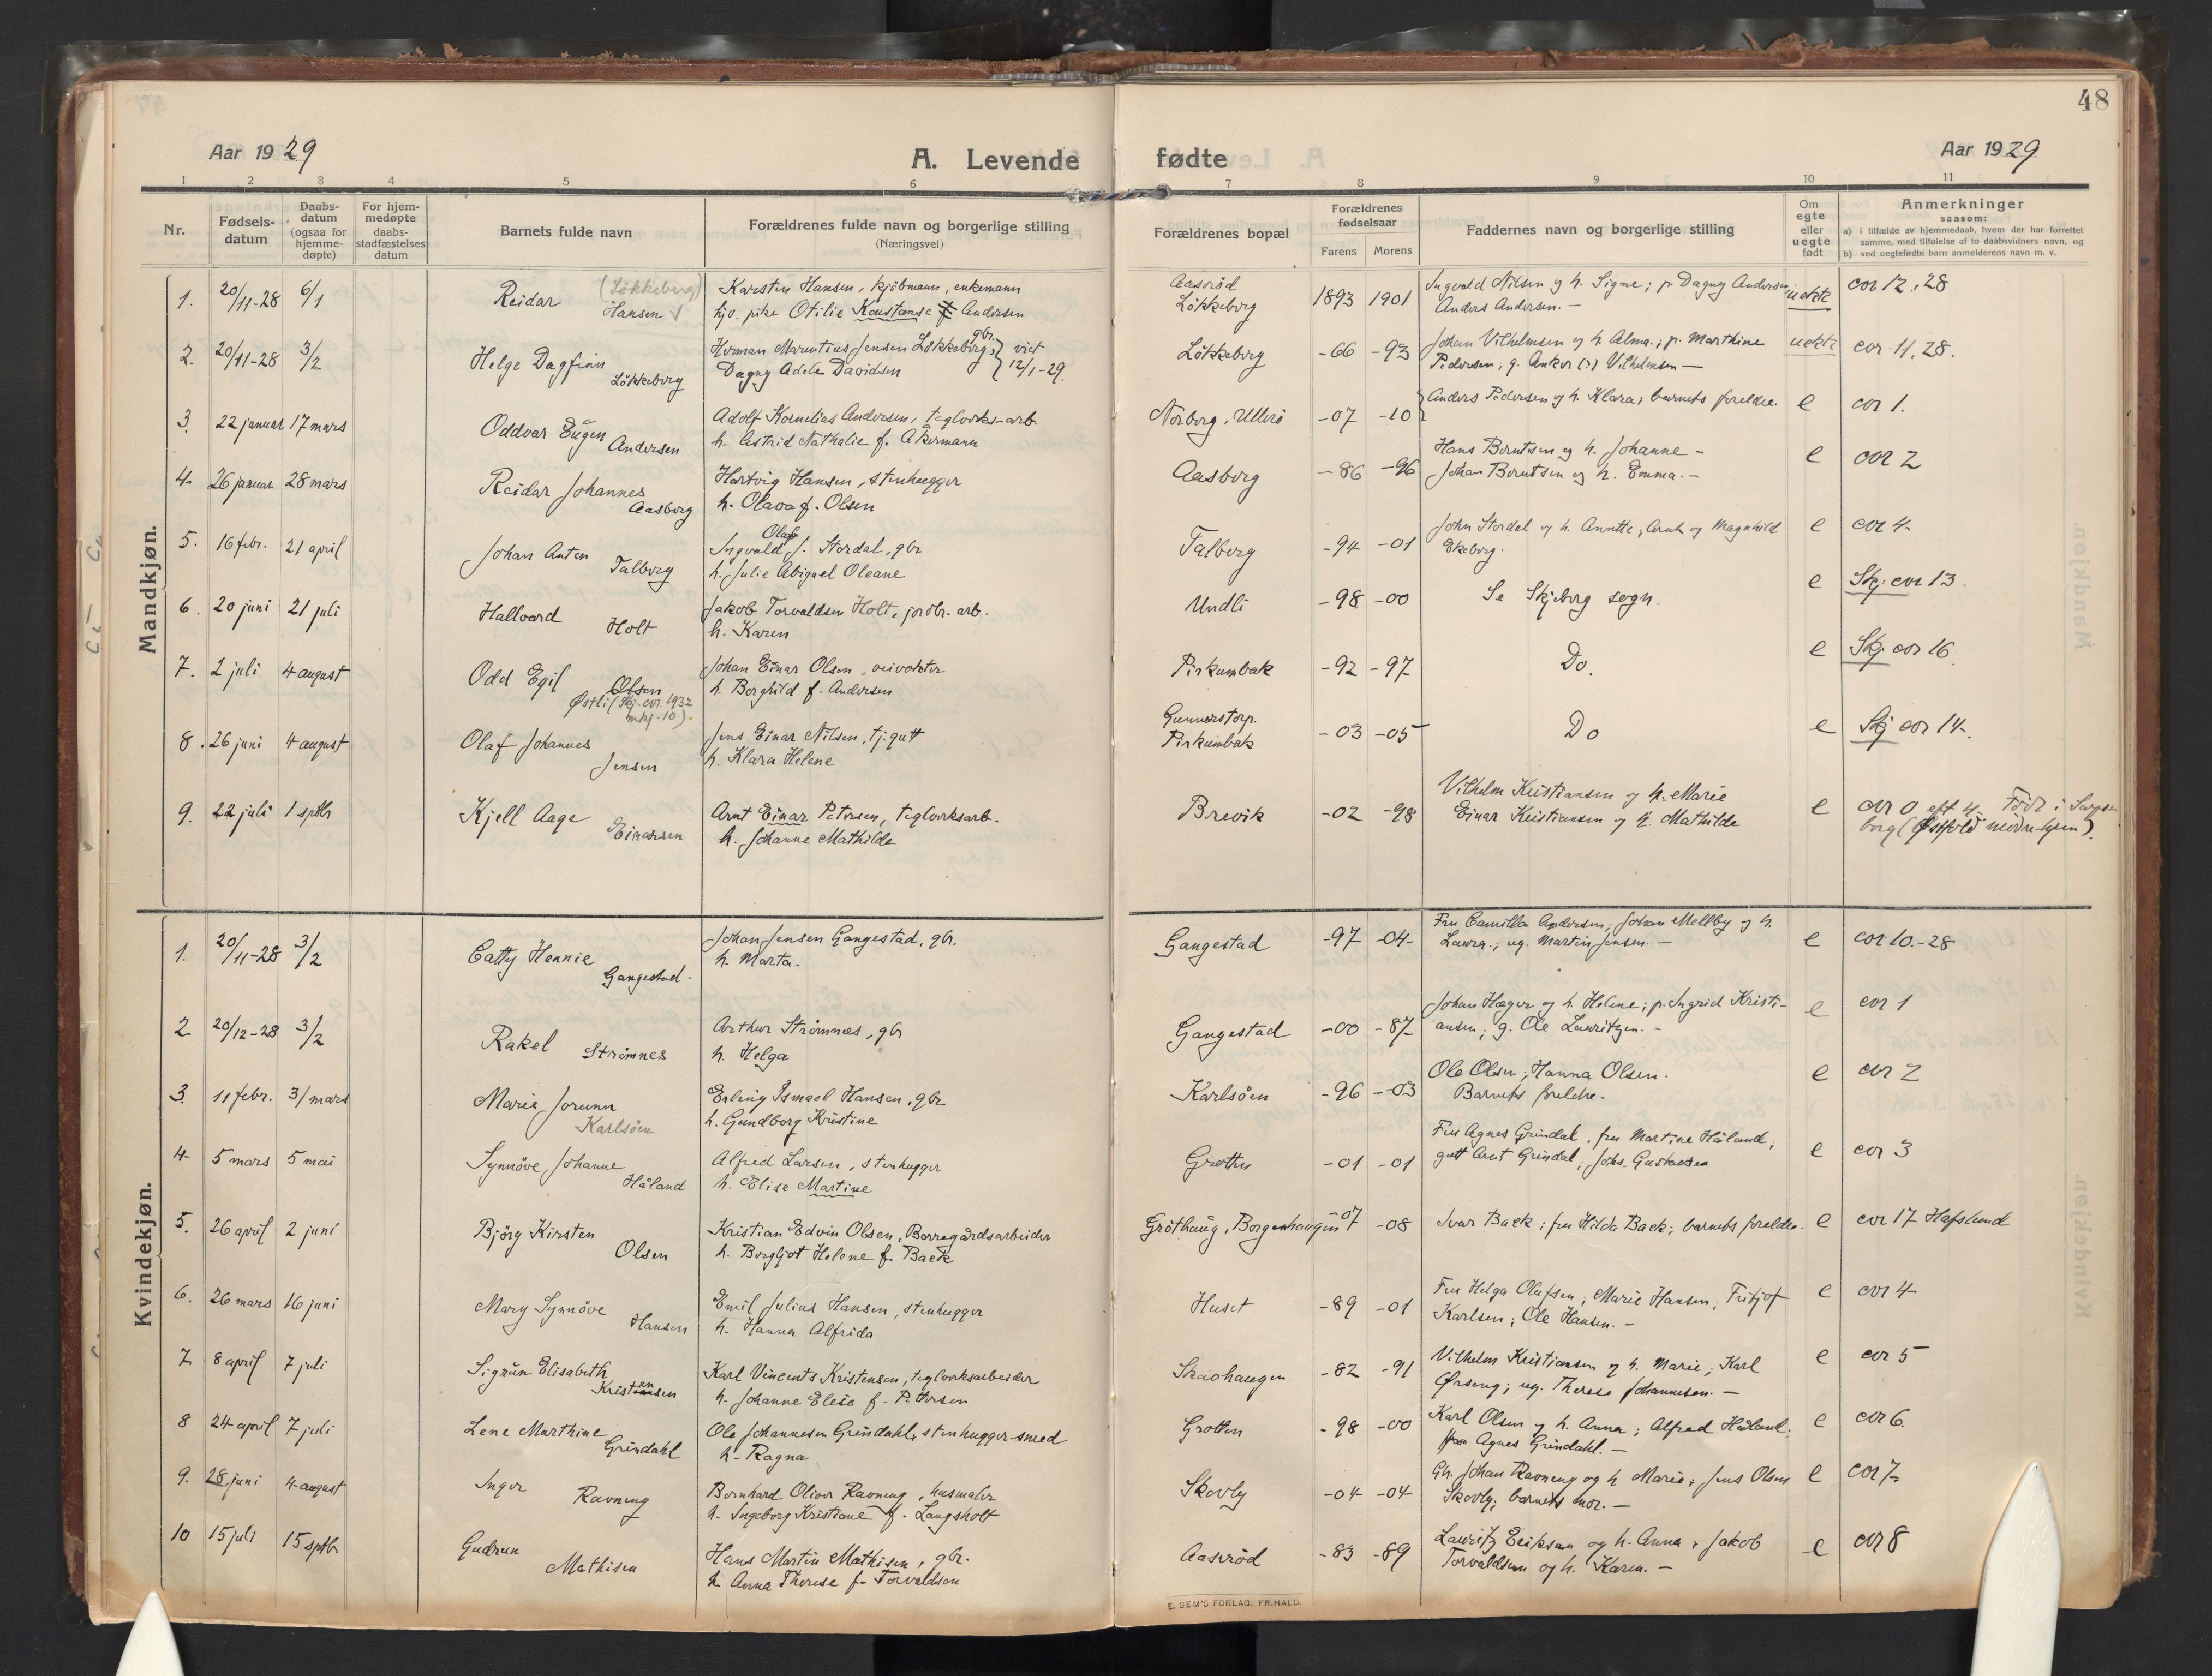 48
Aar 1929 A. Levende fødte Aar 1929
1 2 3 4 5 6 7 8 9 10 11
Nr. Fødsels-datum Daabs-datum (ogsaa for hjemme-døpte) For hjem-medøpte daabs-stadfæstelses datum Barnets fulde navn Forældrenes fulde navn og borgerlige stilling (Næringsvei) Forældrenes bopæl Forældrenes fødselsaar Farens Morens Faddernes navn og borgerlige stilling Om egte eller uegte født Anmerkninger saasom:
a) i tilfælde av hjemmedaab, hvem der har forrettet samme, med tilføielse af to daabsvidners navn, og
b) ved uegtefødte barn anmelderens navn m. v.
Mandkjøn.
1. 20/11-28 6/1 Reidar (Løkkeberg) Hansen Karsten Hansen, kjøbmann, enkemann
hjv. pike Otilie Konstanse Andersen Aaserød Løkkeberg 1893 1901 Ingvald Nilsen og h. Signe; p. Dagny Andersen; Anders Andersen.- uekte cor 12, 28
2. 20/11-28 3/2 Helge Dagfinn Løkkeberg Herman Marentius Jensen Løkkeberg, gbr.
Dagny Adele Davidsen } viet 12/1-29. Løkkeberg -66 -93 Johan Vilhelmsen og h. Alma; p. Marthine
Pedersen; g. Anker (?) Vilhelmsen - uekte cor. 11, 28.
3. 22 januar 17 mars Oddvar Eugen Andersen Adolf Kornelius Andersen, teglverks-arb
h. Astrid Nathalie f. Akermann Norberg, Ullerø -07 -10 Anders Pedersen og h. Klara; barnets foreldre. e cor 1.
4. 26 januar 28 mars Reidar Johannes Aasberg Hartvig Hansen, stenhugger
h. Olava f. Olsen Aasberg -86 -96 Hans Berntsen og h. Johanne -
Johan Berntsen og h. Emma.- e cor 2
5. 16 febr. 21 april Johan Anten Talberg Ingvald Olaf J. Stordal, gbr
h. Julie Abigael Oleane Talberg -94 -01 John Stordal og h. Annette; Arnt og Magnhild
Ekeberg. e cor 4
6. 20 juni 21 juli Hallvard Holt Jakob Torvaldsen Holt, jordbr. arb.
h. Karen Undli -98 -00 Se Skjeberg sogn. e Skj. cor 13.
7. 2 juli 4 august Odd Egil Olsen
Østli (Skj. cor. 1932 mkj. 10). Johan Einar Olsen, veivokter
h. Borghild f. Andersen Pirkumbak -92 -97 Do. e Skj cor 16.
8. 26 juni 4 august Olaf Johannes Jensen Jens Einar Nilsen, tj.gutt
h. Klara Helene Gunnerstorp. Pirkumbak -03 -05 Do e Skj cor 14.
9. 22 juli 1 sptbr Kjell Aage Einarsen Arnt Einar Petersen, teglverksarb.
h. Johanne Mathilde Brevik -02 -98 Vilhelm Kristiansen og h. Marie
Einar Kristiansen og h. Mathilde e cor 0 eft. 4. Født i Sarps-
borg (Østfold mødre-hjem).
Kvindekjøn.
1. 20/11-28 3/2 Catty Hennie Gangestad. Johan Jensen Gangestad, gbr.
h. Marta. Gangestad -97 -04 Fru Camilla Andersen; Johan Mellby og h.
Laura.; ug. Martin Jensen.- e cor 10.-28
2 20/12-28 3/2 Rakel Strømnes Arthur Strømnæs, gbr
h. Helga Gangestad -00 -87 Johan Hæger og h. Helene; p. Ingrid Kristi-
ansen; g. Ole Lauritzen.- e cor 1
3. 11 febr. 31 mars Marie Jorunn Karlsøen Erling Ismael Hansen, gbr
h. Gundborg Kristine Karlsøen -96 -03 Ole Olsen; Hanna Olsen.
Barnets foreldre. e cor 2
4 5 mars 5 mai Synnöve Johanne Håland Alfred Larsen, stenhugger
h. Elise Martine Grotten -01 -01 Fru Agnes Grindal, fru Martine Håland;
gutt Arnt Grindal; Johs. Gustavsen e cor 3
5. 26 april 2 juni Bjørg Kirsten Olsen Kristian Edvin Olsen, Borregårdsarbeider
h. Bergljot Helene f. Back Gröthaug, Borgenhaugen -07 -08 Ivar Back; fru Hilda Back; barnets foreldre. e cor 17 Hafslund
6. 26 mars 16 juni Mary Synnöve Hansen Emil Julius Hansen, stenhugger
h. Hanna Alfrida Huset -89 -01 Fru Helga Olafsen; Marie Hansen; Fritjof
Karlsen; Ole Hansen.- e cor 4
7 8 april 7 juli Sigrun Elisabeth Kristensen Karl Vincents Kristensen, teglverksarbeider
h. Johanne Elise f. Petersen Skaohaugen -82 -91 Vilhelm Kristiansen og h. Marie; Karl
Ørseng; ug. Therese Johannesen.- e cor 5
8 24 april 7 juli Lene Marthine Grindahl Ole Johannesen Grindahl, stenhugger-smed
h. Ragna Grotten -98 -00 Karl Olsen og h. Anna; Alfred Haaland;
fru Agnes Grindahl.- e cor 6.
9. 28 juni 4 august Inger Ravneng Bernhard Oliver Ravneng, husmaler
h. Ingeborg Kristiane f. Langsholt Skovly -04 -04 Gbr. Johan Ravneng og h Marie; Jens Olsen
Skovly; barnets mor.- e cor 7
10 15 juli 15 sptbr Gudrun Mathisen Hans Martin Mathisen, gbr.
h. Anna Therese f. Torvaldsen Aaserød -83 -89 Lauritz Eriksen og h. Anna, Jakob
Torvaldsen og h. Karen.- e cor 8
E. SEM'S FORLAG, FR.HALD.